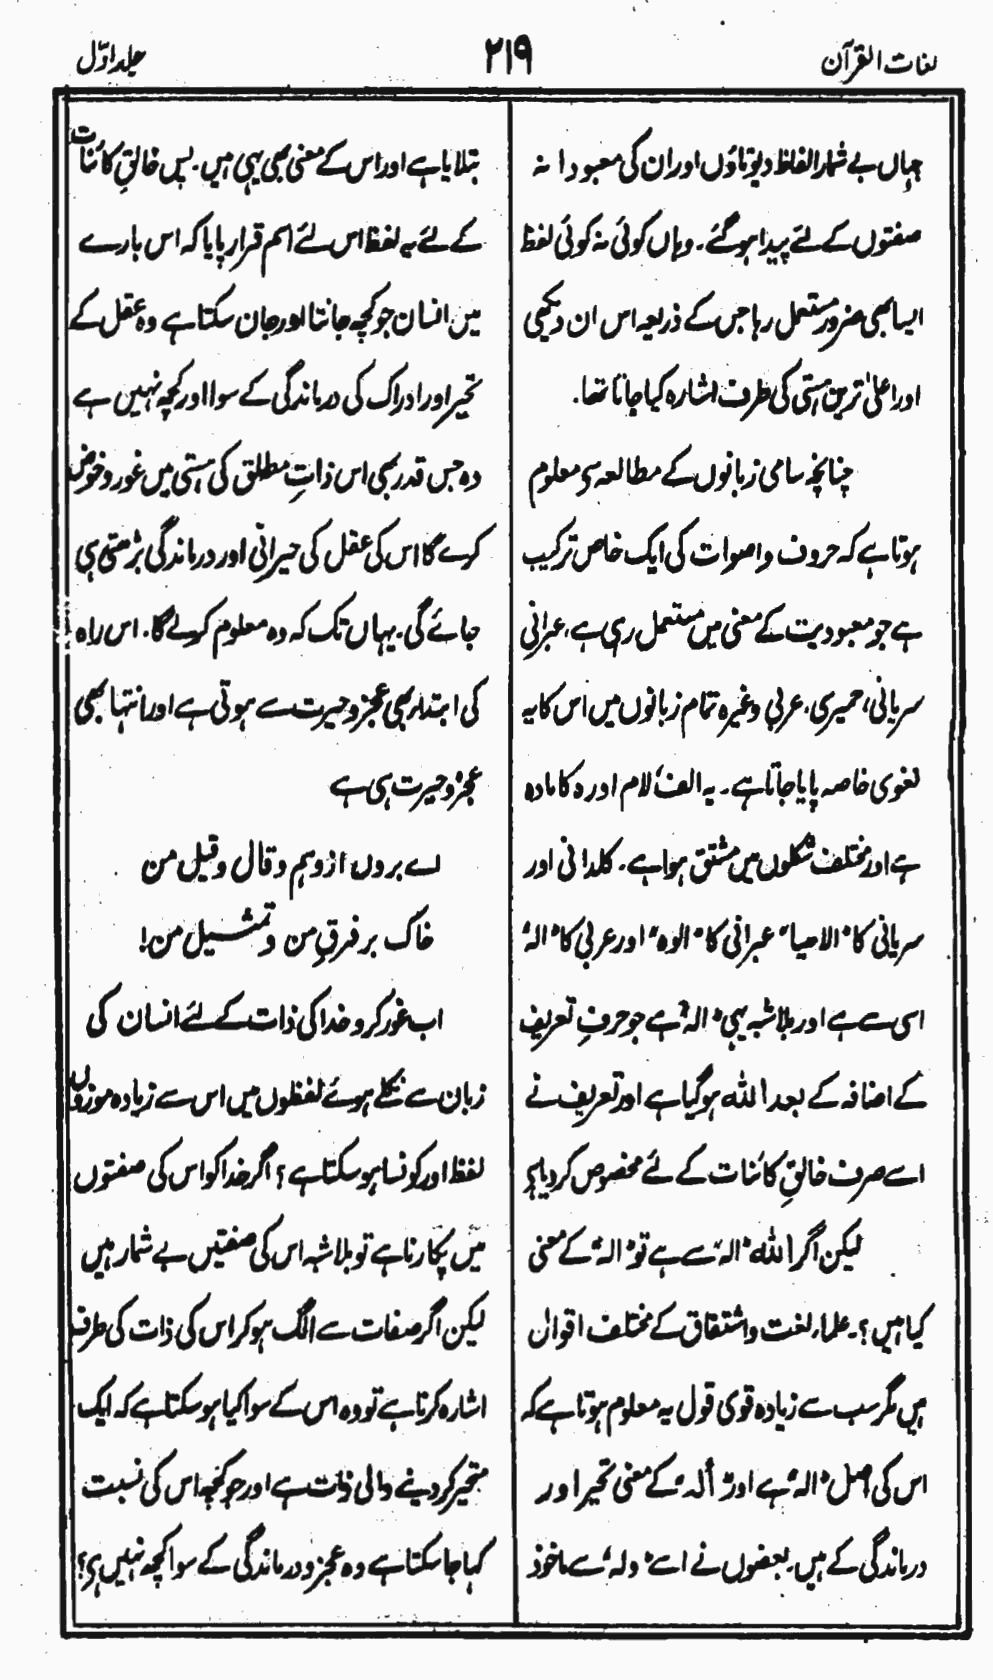 لغات القرآن
۲۱۹
جلد اوّل
جہاں بے شمار الفاظ دیوتاؤں اور ان کی معبود ا نہ
صفتوں کے لئے پیدا ہو گئے۔ وہاں کوئی نہ کوئی لفظ
ایسا بھی ضرور مستعمل رہا جس کے ذریعہ اس ان دیکھی
اور اعلیٰ ترین ہستی کی طرف اشارہ کیا جاتا تھا۔
چنانچہ سامی زبانوں کے مطالعہ سے معلوم
ہوتا ہے کہ حروف و اصوات کی ایک خاص ترکیب
ہے جو معبودیت کے معنی میں مستعمل رہی ہے، عبرانی
سریانی، حمیری، عربی وغیرہ تمام زبانوں میں اس کا یہ
لغوی خاصہ پایا جاتا ہے۔ یہ الف، لام اور ہ کا مادہ
ہے اور مختلف شکلوں میں مشتق ہوا ہے۔ کلدانی اور
سریانی کا "الاھیا" عبرانی کا "الوہ" اور عربی کا "الہ"
اسی سے ہے اور بلا شبہ یہی "الہ" ہے جو حرفِ تعریف
کے اضافہ کے بعد اللہ ہو گیا ہے اور تعریف نے
اسے صرف خالقِ کائنات کے لئے مخصوص کر دیا ہے
لیکن اگر اللہ "الہ" سے ہے تو "الہ" کے معنی
کیا ہیں؟۔ علماء لغت و اشتقاق کے مختلف اقوال
ہیں مگر سب سے زیادہ قوی قول یہ معلوم ہوتا ہے کہ
اس کی اصل "الہ" ہے اور "ألہ" کے معنی تحیر اور
درماندگی کے ہیں۔ بعضوں نے اسے "ولہ" سے ماخوذ
بتلایا ہے اور اس کے معنی بھی یہی ہیں۔ پس خالقِ کائنات
کے لئے یہ لفظ اس لئے اسم قرار پایا کہ اس بارے
میں انسان جو کچھ جانتا اور جان سکتا ہے وہ عقل کے
تحیر اور ادراک کی درماندگی کے سوا اور کچھ نہیں ہے
وہ جس قدر بھی اس ذاتِ مطلق کی ہستی میں غور و خوض
کرے گا اس کی عقل کی حیرانی اور درماندگی بڑھتی ہی
جائے گی۔ یہاں تک کہ وہ معلوم کر لے گا۔ اس راہ
کی ابتداء بھی عجز و حیرت سے ہوتی ہے اور انتہا بھی
عجز و حیرت ہی ہے
اے بروں از وہم و قال و قیل من
خاک بر فرقِ من و تمثیل من!
اب غور کرو خدا کی ذات کے لئے انسان کی
زبان سے نکلے ہوئے لفظوں میں اس سے زیادہ موزوں
لفظ اور کونسا ہو سکتا ہے؟ اگر خدا کو اس کی صفتوں
میں پکارنا ہے تو بلا شبہ اس کی صفتیں بے شمار ہیں
لیکن اگر صفات سے الگ ہو کر اس کی ذات کی طرف
اشارہ کرنا ہے تو وہ اس کے سوا کیا ہو سکتا ہے کہ ایک
متحیر کر دینے والی ذات ہے اور جو کچھ اس کی نسبت
کہا جا سکتا ہے وہ عجز و درماندگی کے سوا کچھ نہیں ہے؟